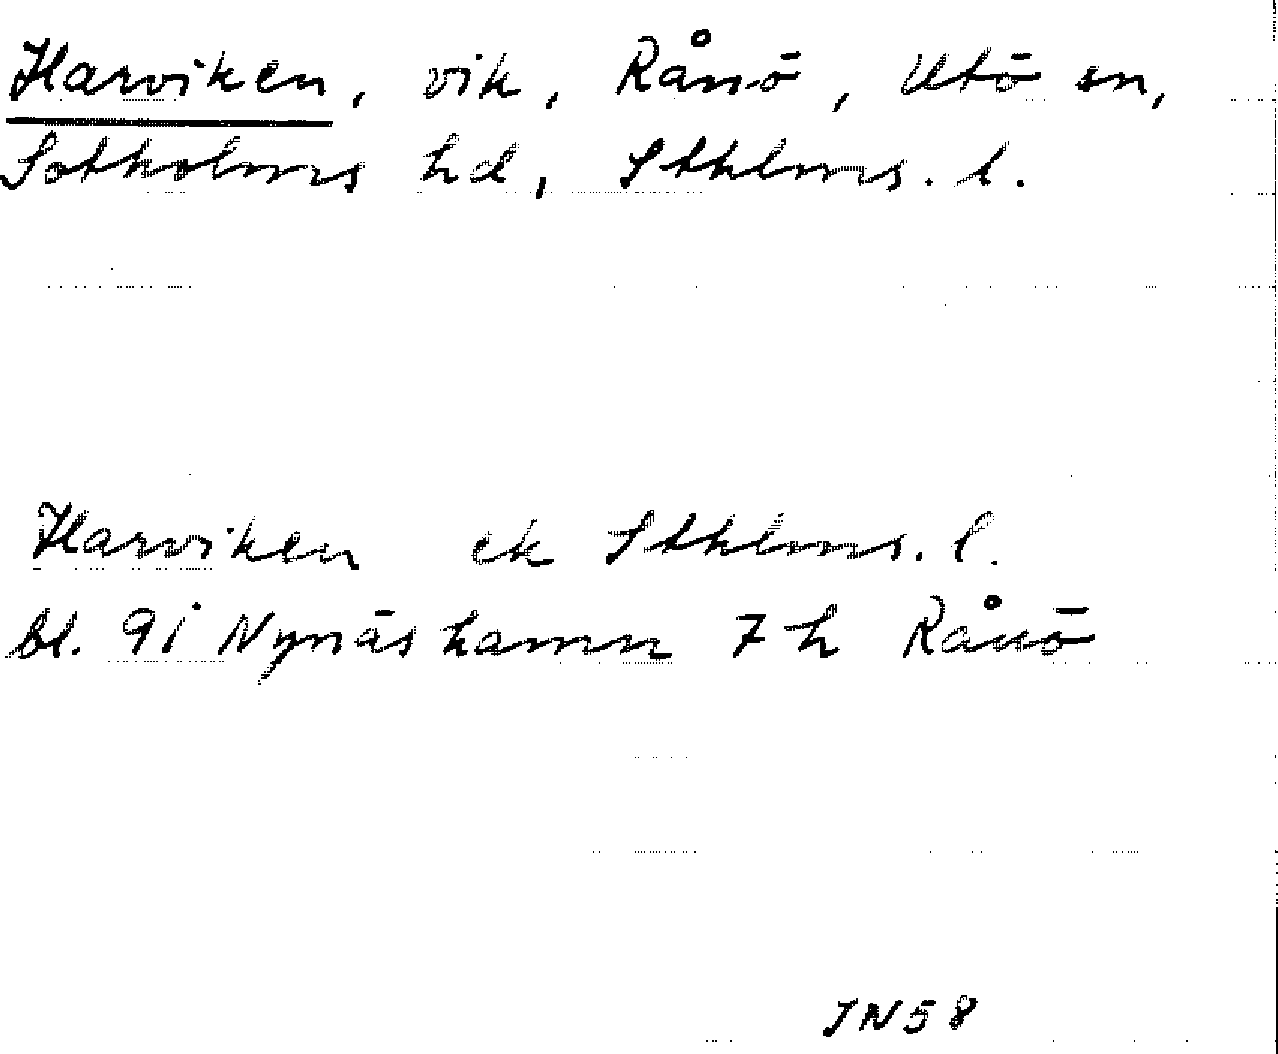 Harviken, vik, Rånö, Utö sn,
Sotholms hd, Sthlms. l.
Harviken ek Sthlms. l.
bl. 91 Nynäshamn 7 h Rånö
JN58